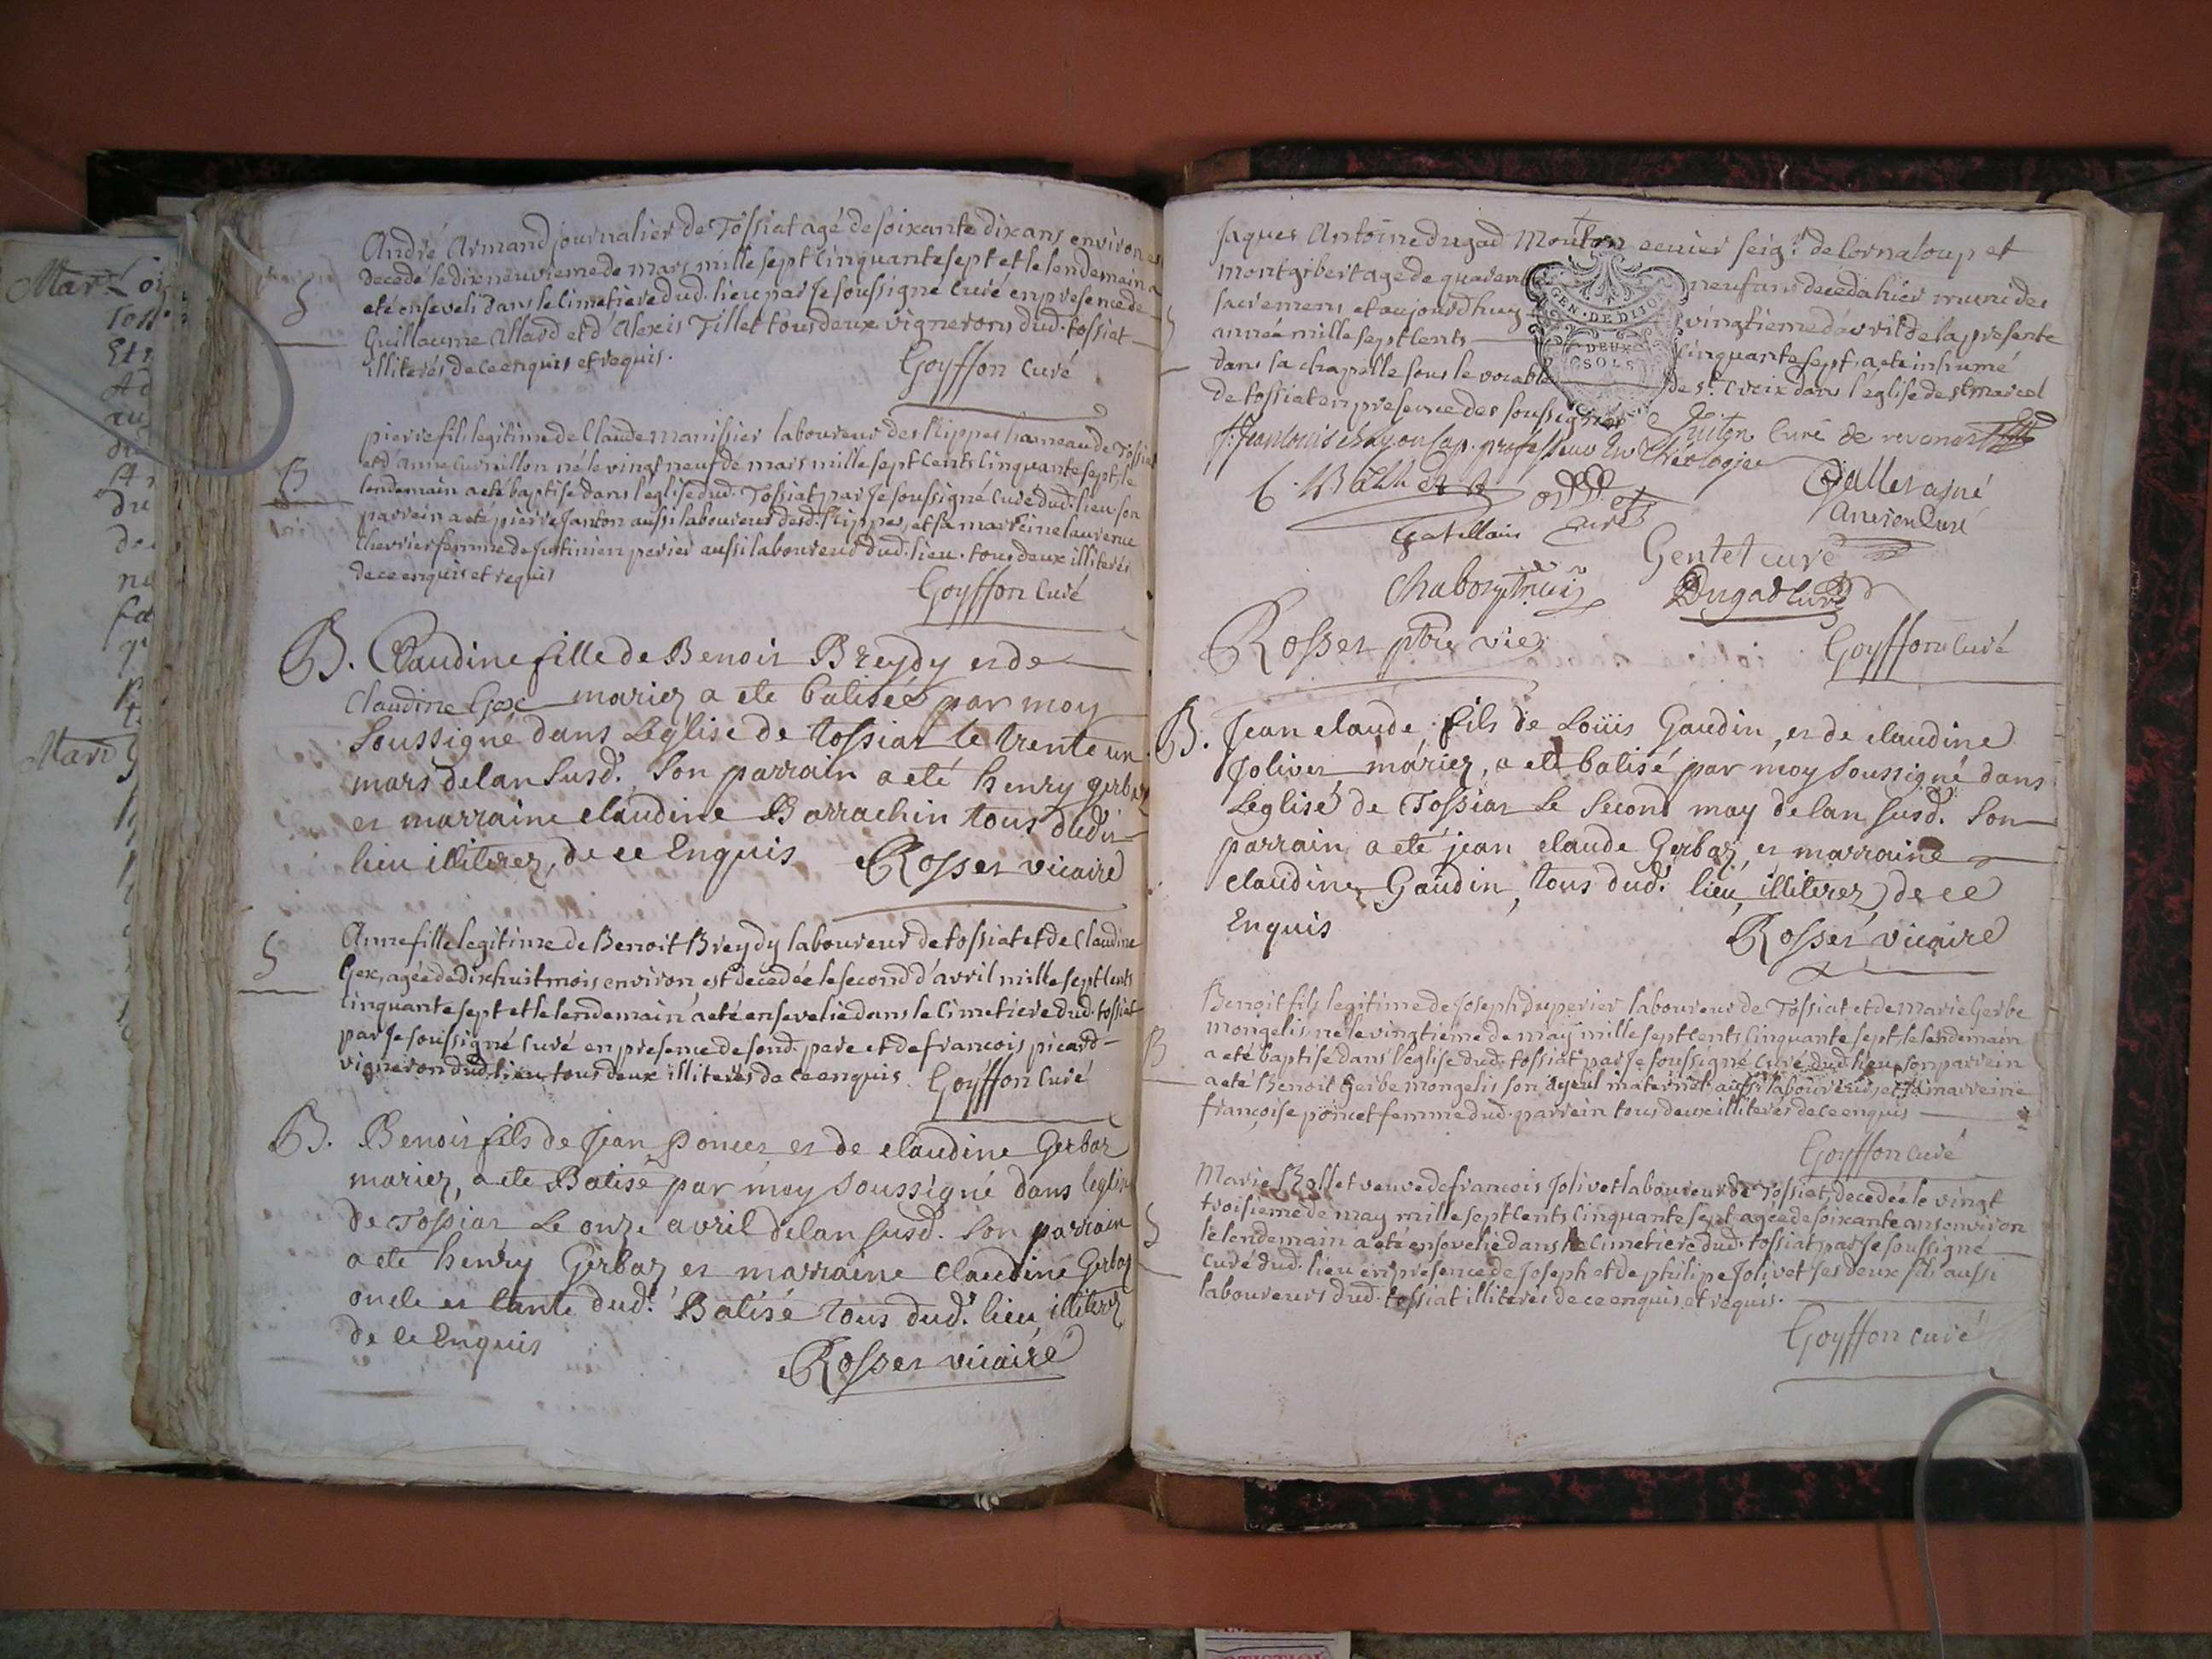 André Armand journalier de Tossiat agé de soixante dix ans environ est
decedé le dix neuvieme de mars mille sept cinquante sept et le lendemain a
S
eté enseveli dans le Cimetiere dud. lieu par Je soussigné Curé en presence de
Guillaume Allard et d'Alexis Tillet tous deux vignerons dud. tossiat
illiterés de ce enquis et requis.
Goyffon Curé
pierre fils legitime de Claude manissier laboureur des Rippes hameau de Tossiat
B
et d'anne Curnillon né le vingt neuf de mars mille sept cents cinquante sept, le
lendemain a eté baptisé dans l'eglise dud. Tossiat par Je soussigné Curé dud. lieu son
parrein a eté pierre Janton aussi laboureur desd. Rippes, et sa marreine laurence
Chevrier femme de Justinien perier aussi laboureur dud. lieu. tous deux illiterés
de ce enquis et requis
Goyffon Curé
B. Claudine fille de Benoit Breydy et de
Claudine Gex mariez a eté batisée par moy
Soussigné dans Léglise de tossiat le trente un
mars de lan susd. Son parrain a eté henry gerbaz
et marraine claudine Barrachin tous dudit
lieu illiterez, de ce Enquis Rosset vicaire
Anne fille legitime de Benoit Breydy laboureur de tossiat et de Claudine
S
Gex, agée de dix huit mois environ est décedée le second d'avril mille sept cents
cinquante sept et le lendemain a eté ensevelie dans le Cimetiere dud. tossiat
par Je soussigné Curé en presence de sond. pere et de francois picard
vigneron dud. lieu tous deux illiterés de ce enquis Goyffon Curé
B. Benoit fils de Jean Poncet et de claudine Gerbaz
mariez, a eté Batisé par moy Soussigné dans leglise
de Tossiat Le onze avril de lan susd. Son parrain
a eté henry Gerbaz et marraine Claudine Gerbaz
oncle et tante dud. Batisé tous dud. lieu illiterez
de ce Enquis
Rosset vicaire
Jaques Antoine dugad Monton ecuier seigr. de Cornaloup et
montgibert agé de quarente neuf ans decedahier muni des
S
sacremens et aujourdhuy vingtieme d'avril de la presente
année mille sept cents cinquante sept, a eté inhumé
dans la chapelle sous le vocable de ste Croix dans l'eglise de st marcel
de tossiat en presence des soussignés
GEN. DE DIJON
DEUX
SOLS
f. Jean louis Cap. professeur En Theologie
Guiton Curé de revonas
Gallet agné
ancien Curé
Curé
Gatillain
Gentet curé
Dugad Curé
Rosset ptre vic.
Goyffon Curé
B. Jean claude fils de Loüis Gaudin, et de claudine
Jolivet mariez, a eté batisé par moy soussigné dans
Leglise de Tossiat Le Second may de lan susd. Son
parrain a eté jean claude Gerbaz, et marraine
claudine Gaudin, tous dud. lieu, illiterez de ce
Enquis
Rosset vicaire
Benoit fils legitime de Joseph Duperier laboureur de Tossiat et de Marie Gerbe
mongelis, né le vingtieme de may mille sept cents cinquante sept, le lendemain
B
a eté baptisé dans l'eglise dud. tossiat par Je soussigné Curé dud. lieu, son parrein
a eté Benoit Gerbe mongelis son ayeul maternel aussi laboureur, et sa marreine
françoise poncet femme dud. parrein tous deux illiterés de ce enquis
Goyffon Curé
Marie Rollet veuve de francois Jolivet laboureur de Tossiat, decedée le vingt
troisieme de may mille sept cents cinquante sept agée de soixante ans environ
S
le lendemain a eté ensevelie dans le cimetiere dud. tossiat par Je soussigné
Curé dud. lieu en presence de Joseph et de philipe Jolivet ses deux fils aussi
laboureurs dud. tossiat illiterés de ce enquis et requis.
Goyffon Curé